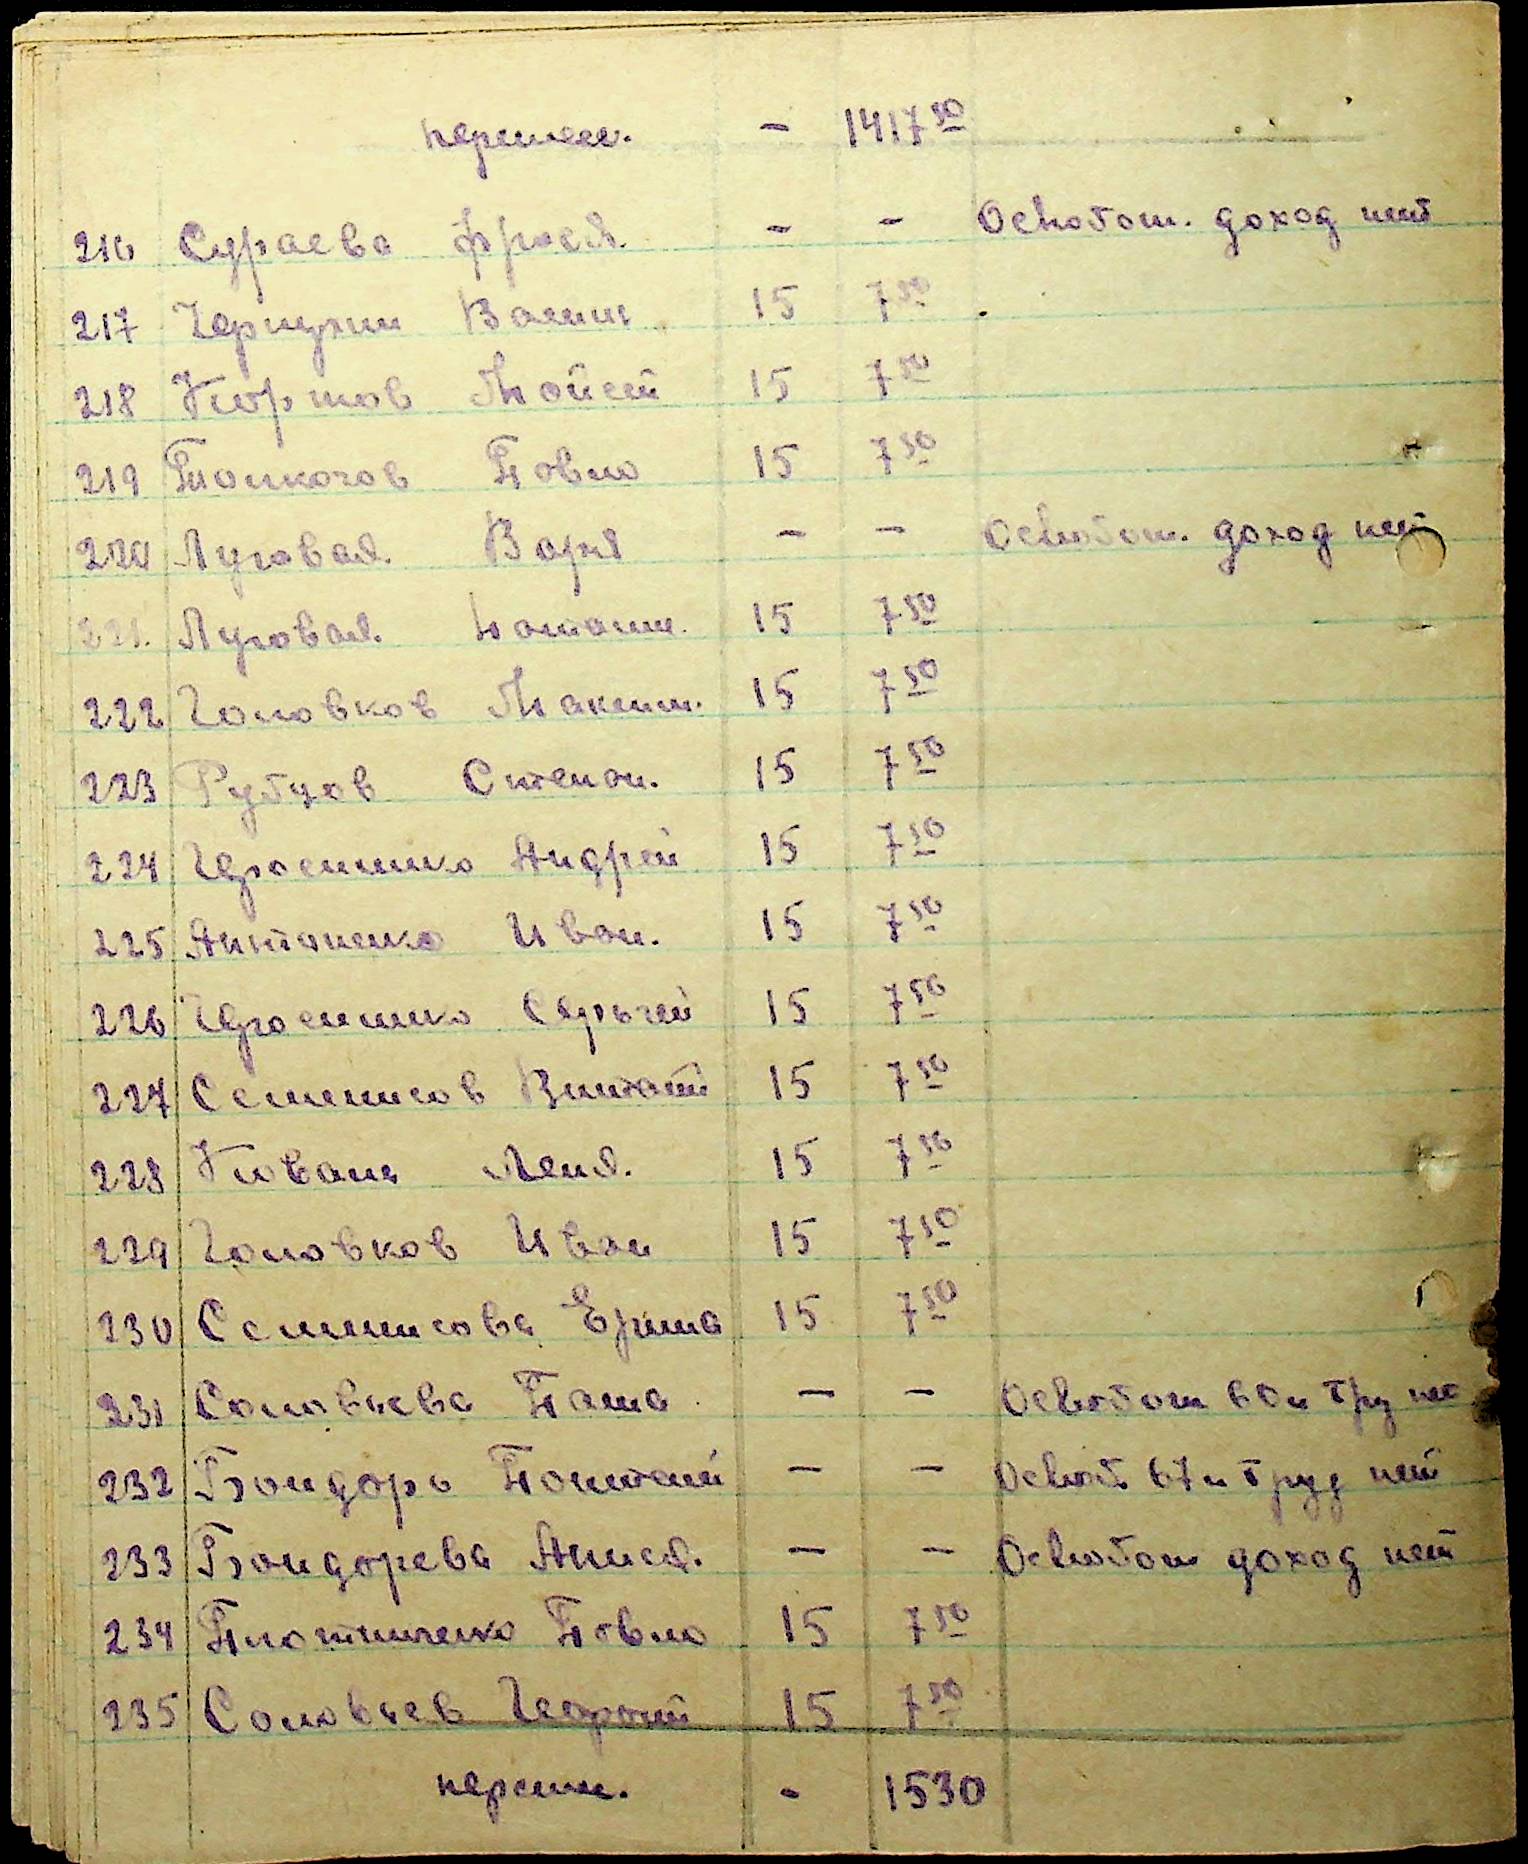 перенес. - 1417 50
216 Сураева Фрося - - Освобож. доход нет
217 15 7 50
218 Коржов Мойсей 15 7 50
219 Толкочов Павло 15 7 50
220 Луговая Варя - - Освобож. доход нет
221. Луговая Наташа 15 7 50
222 Головков Максим. 15 7 50
223 Рубцов Степан. 15 7 50
224 Герасименко Андрей 15 7 50
225 Антоненко Иван. 15 7 50
226 Герасименко Сергей 15 7 50
227 Семенисов 15 7 50
228 Коваль Леня. 15 7 50
229 Головков Иван 15 7 50
230 15 7 50
231 Соловьева Паша - - Освобож 60 л нет
232 Бондарь Пантелей - - Освоб 67 л труд нет
233 Бондарева Анися. - - Освобож доход нет
234 Плотниченко Павло 15 7 50
235 Соловьев Георгий 15 7 50
перенес. - 1530